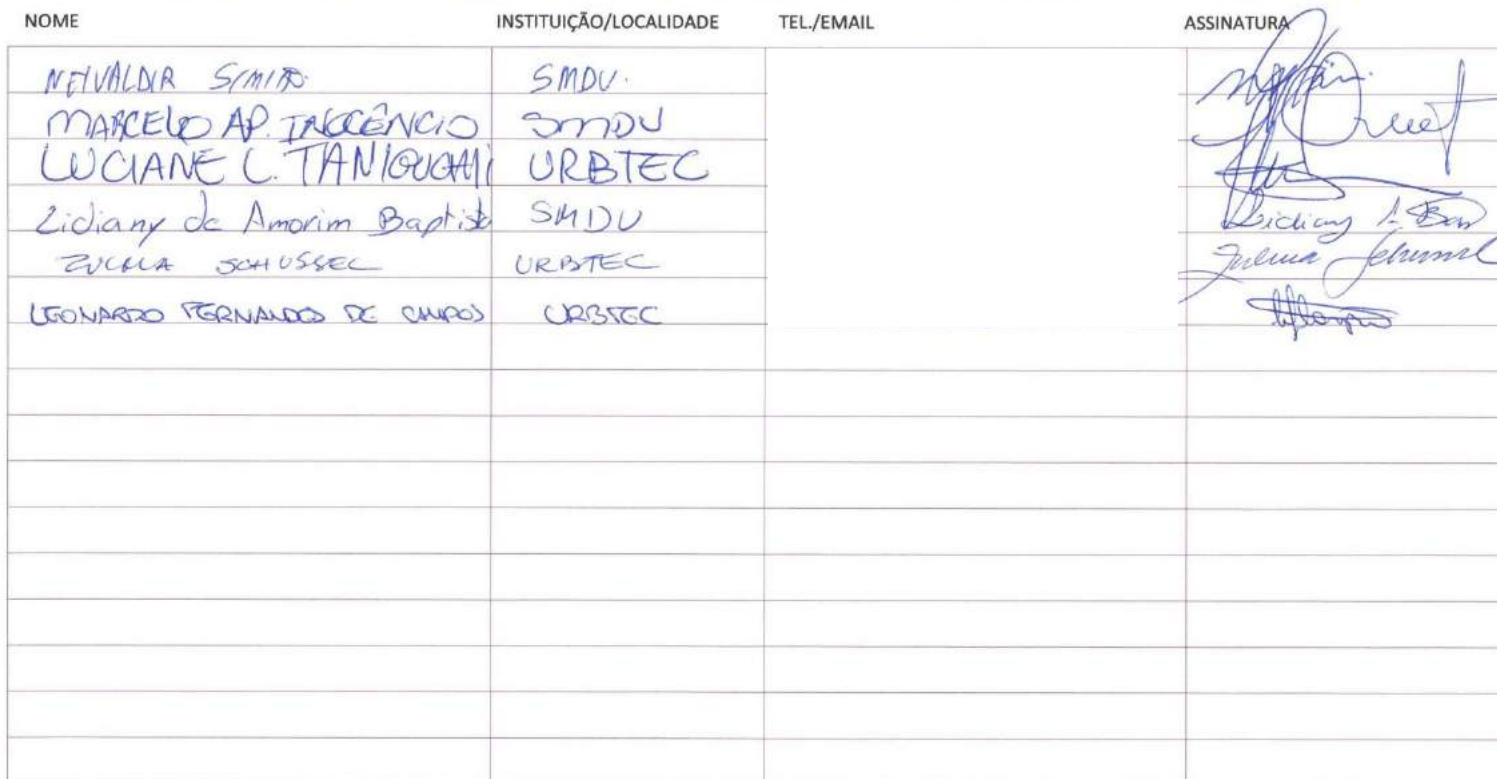 NOME INSTITUIÇÃO/LOCALIDADE TEL./EMAIL ASSINATURA
NEIVALDIR SMDU.
MARCELO AP. INOCÊNCIO SMDU
LUCIANE C. TANIGUCHI URBTEC
Lidiany de Amorim Baptista SMDU Lidiany A. Bap
SCHUSSEL URBTEC
LEONARDO FERNANDES DE CAMPOS URBTEC